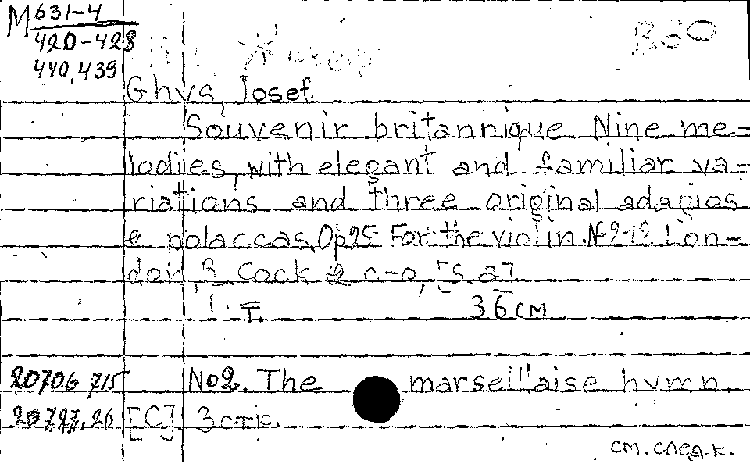 M 631-4
420-428
440,439
Ghys, Josef.
Souvenir britannique Nine me-
lodies, with elegant and familiar va-
riations and three original adagios
e polaccas, Op25 For the violin. №2-12. Lon-
don, R. Cock & c-o, [S.a]
T.
36 см
20706 715
No2. The marseillaise hymn.
20727.26 [C] 3 стр.
см. след. к.